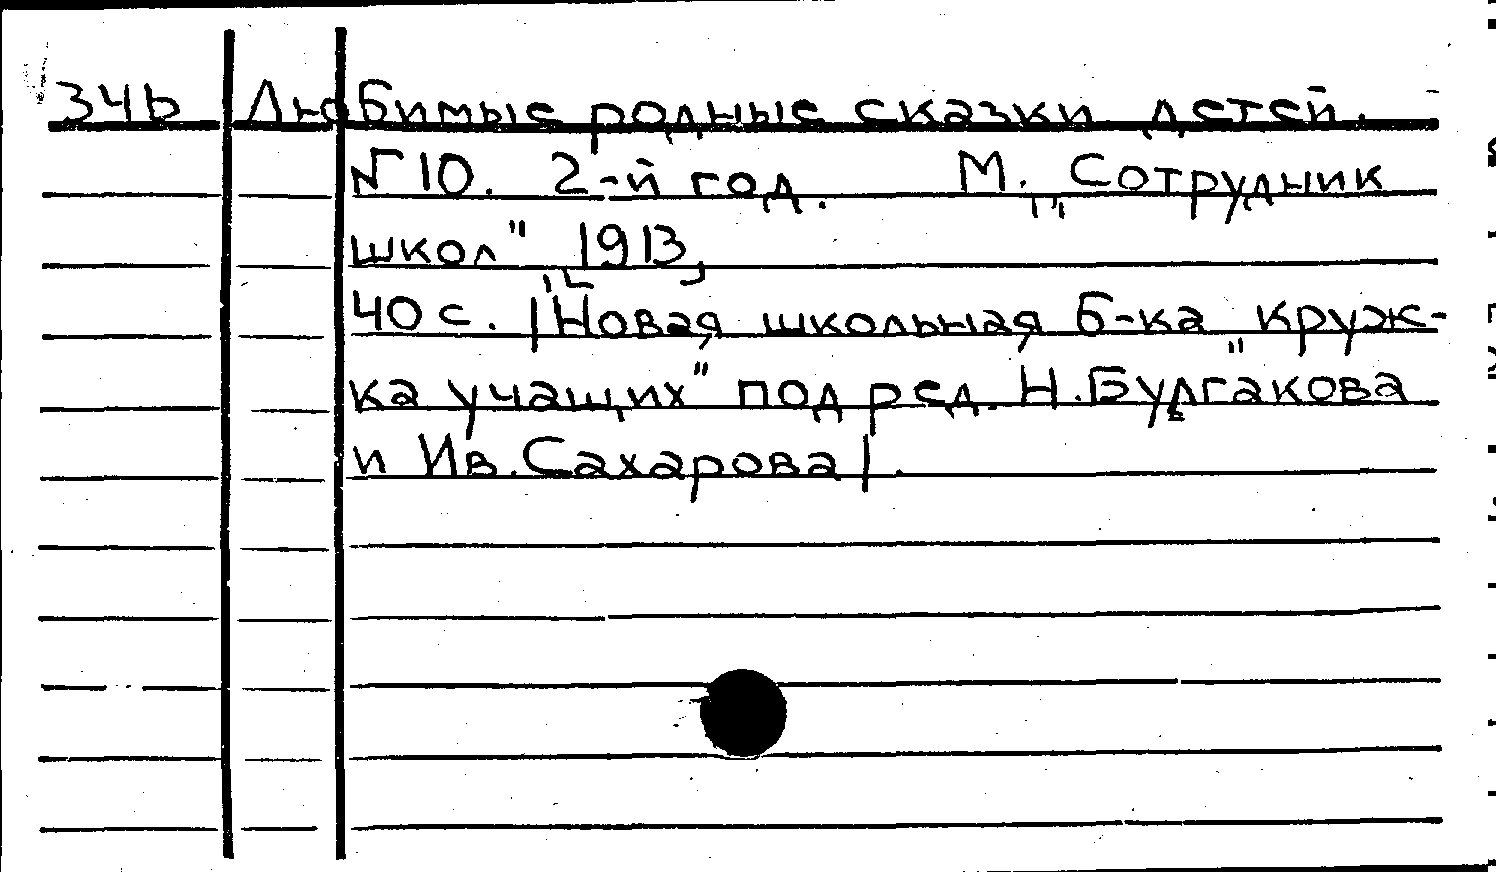 ЗЧЬ Любимые родные сказки детей.
№10. 2-й год. М. „Сотрудник
школ" [1913]
40 с. |Новая школьная б-ка „круж-
ка учащих" под ред. Н.Булгакова
и Ив.Сахарова|.